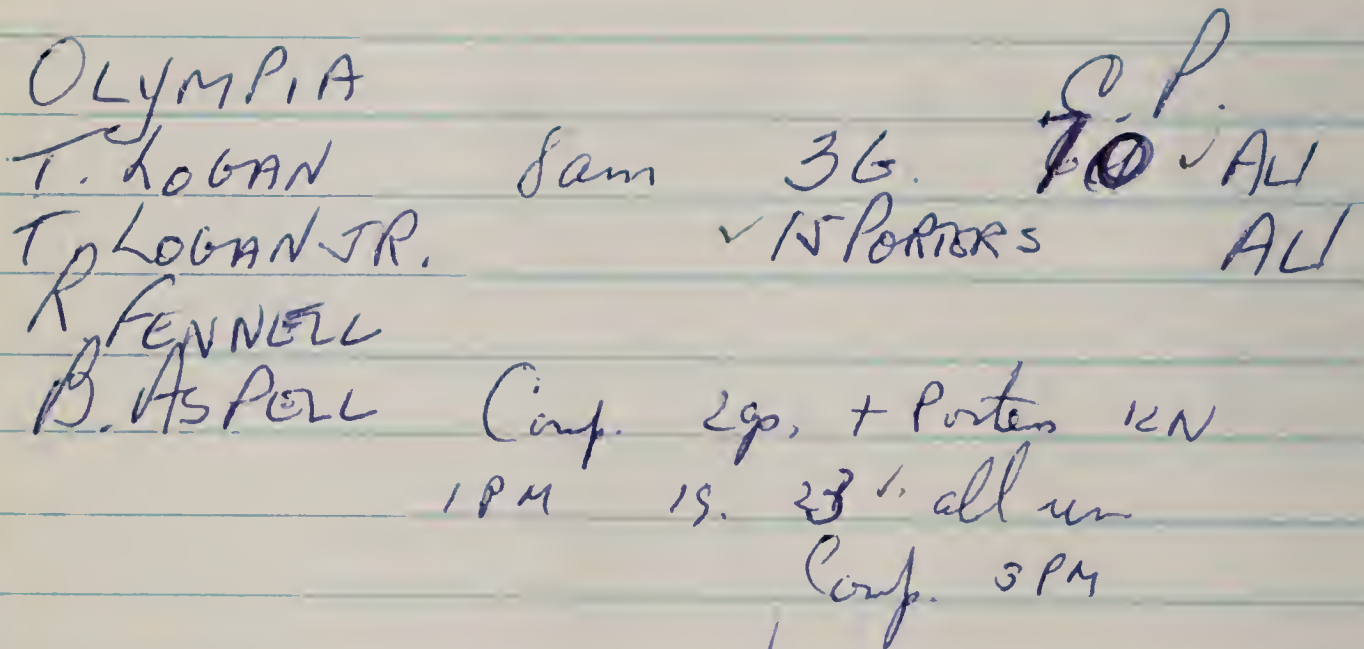 OLYMPIA
C. P.
T. LOGAN 8am 3G. 70 ✓ ALI
T. LOGAN JR. ✓ 15 PORTERS ALI
R. FENNELL
B. ASPELL Comp. 2gs, + Porters 12N
1 PM 1G. 23 ✓ all um
Comp. 5 PM